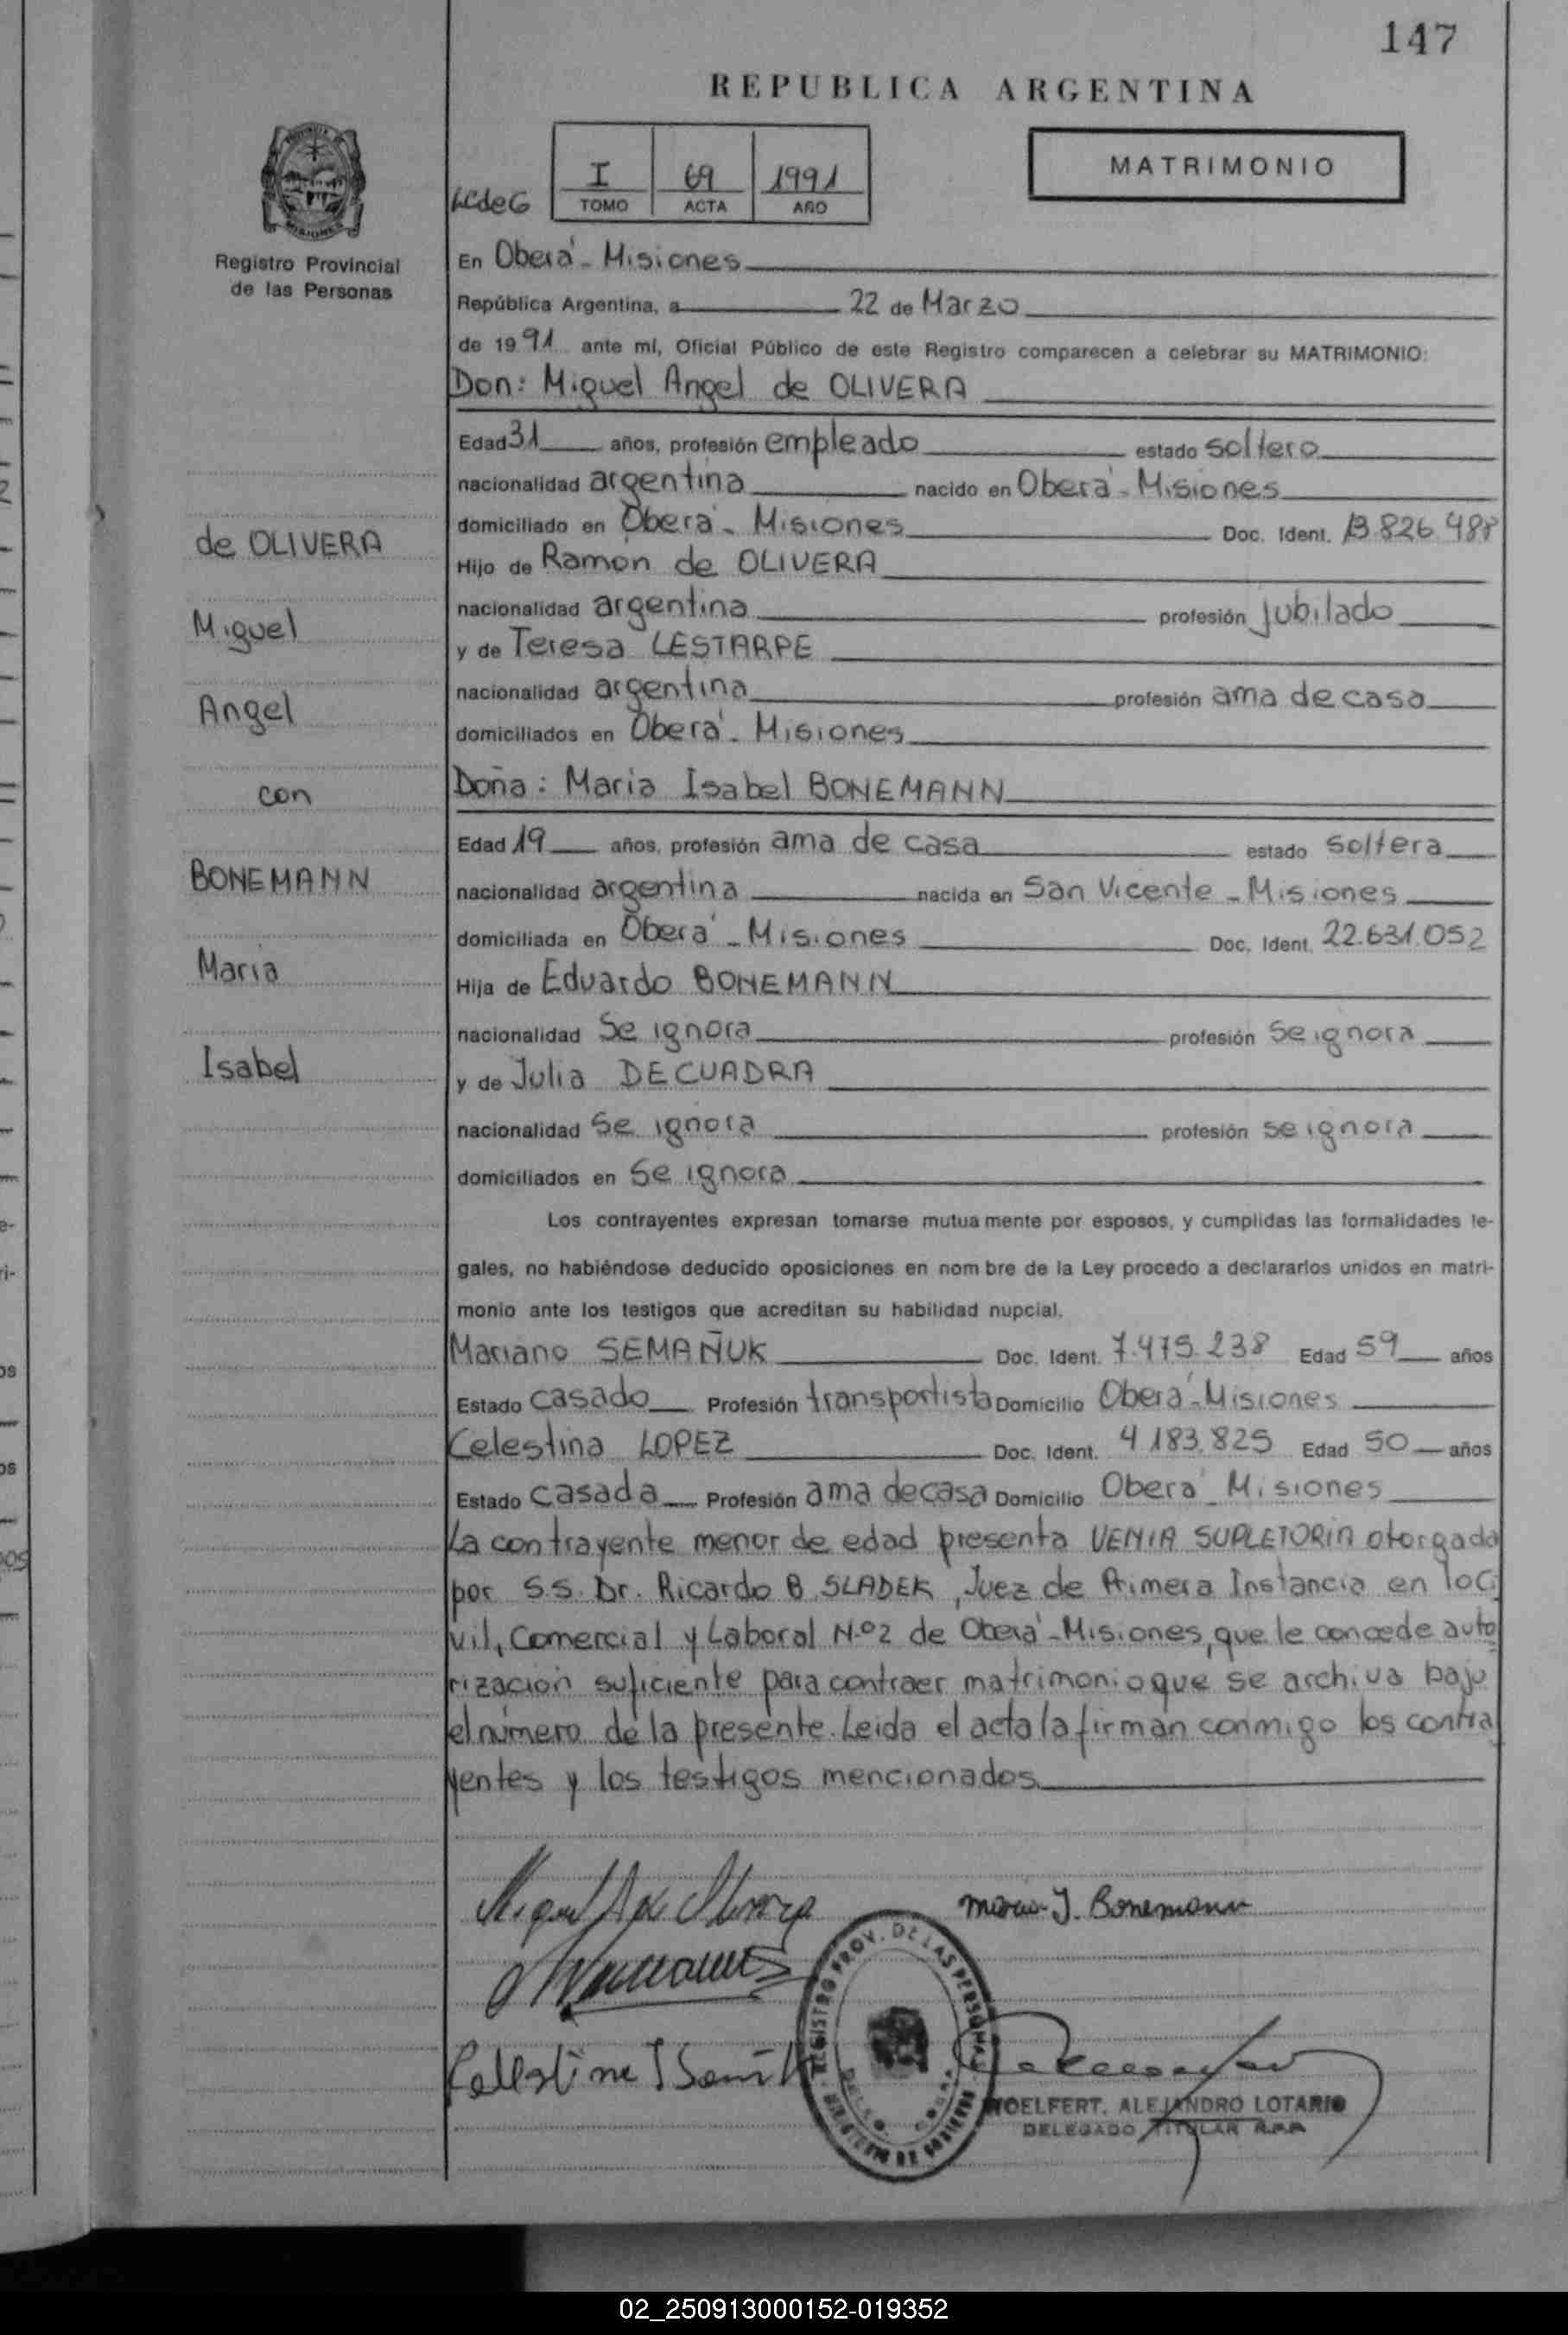 147
REPUBLICA ARGENTINA
MATRIMONIO
I 69 1991
TOMO ACTA AÑO
LCdeG
Registro Provincial
de las Personas
En Oberá - Misiones
República Argentina, a 22 de Marzo
de 1991 ante mí, Oficial Público de este Registro comparecen a celebrar su MATRIMONIO:
Don: Miguel Angel de OLIVERA
Edad 31 años, profesión empleado estado soltero
nacionalidad argentina nacido en Oberá - Misiones
domiciliado en Oberá - Misiones Doc. Ident. 13.826.488
Hijo de Ramón de OLIVERA
nacionalidad argentina profesión jubilado
y de Teresa LESTARPE
nacionalidad argentina profesión ama de casa
domiciliados en Oberá - Misiones
Doña: Maria Isabel BONEMANN
Edad 19 años, profesión ama de casa estado soltera
nacionalidad argentina nacida en San Vicente - Misiones
domiciliada en Oberá - Misiones Doc. Ident. 22.631.052
Hija de Eduardo BONEMANN
nacionalidad Se ignora profesión Se ignora
y de Julia DECUADRA
nacionalidad Se ignora profesión se ignora
domiciliados en Se ignora
de OLIVERA
Miguel
Angel
con
BONEMANN
Maria
Isabel
Los contrayentes expresan tomarse mutua mente por esposos, y cumplidas las formalidades le-
gales, no habiéndose deducido oposiciones en nom bre de la Ley procedo a declararlos unidos en matri-
monio ante los testigos que acreditan su habilidad nupcial.
Mariano SEMAÑUK Doc. Ident. 7.475.238 Edad 59 años
Estado casado Profesión transportista Domicilio Oberá - Misiones
Celestina LOPEZ Doc. Ident. 4.183.825 Edad 50 años
Estado casada Profesión ama de casa Domicilio Oberá - Misiones
La contrayente menor de edad presenta VENIA SUPLETORIA otorgada
por S.S. Dr. Ricardo B. SLADEK, Juez de Primera Instancia en lo Ci
vil, Comercial y Laboral N.º2 de Oberá - Misiones, que le concede auto
rización suficiente para contraer matrimonio que se archiva bajo
el número de la presente. Leida el acta la firman conmigo los contra
yentes y los testigos mencionados
Maria I. Bonemann
REGISTRO PROV. DE LAS PERSONAS
WOELFERT, ALEJANDRO LOTARIO
DELEGADO TITULAR R.P.P.
02_250913000152-019352